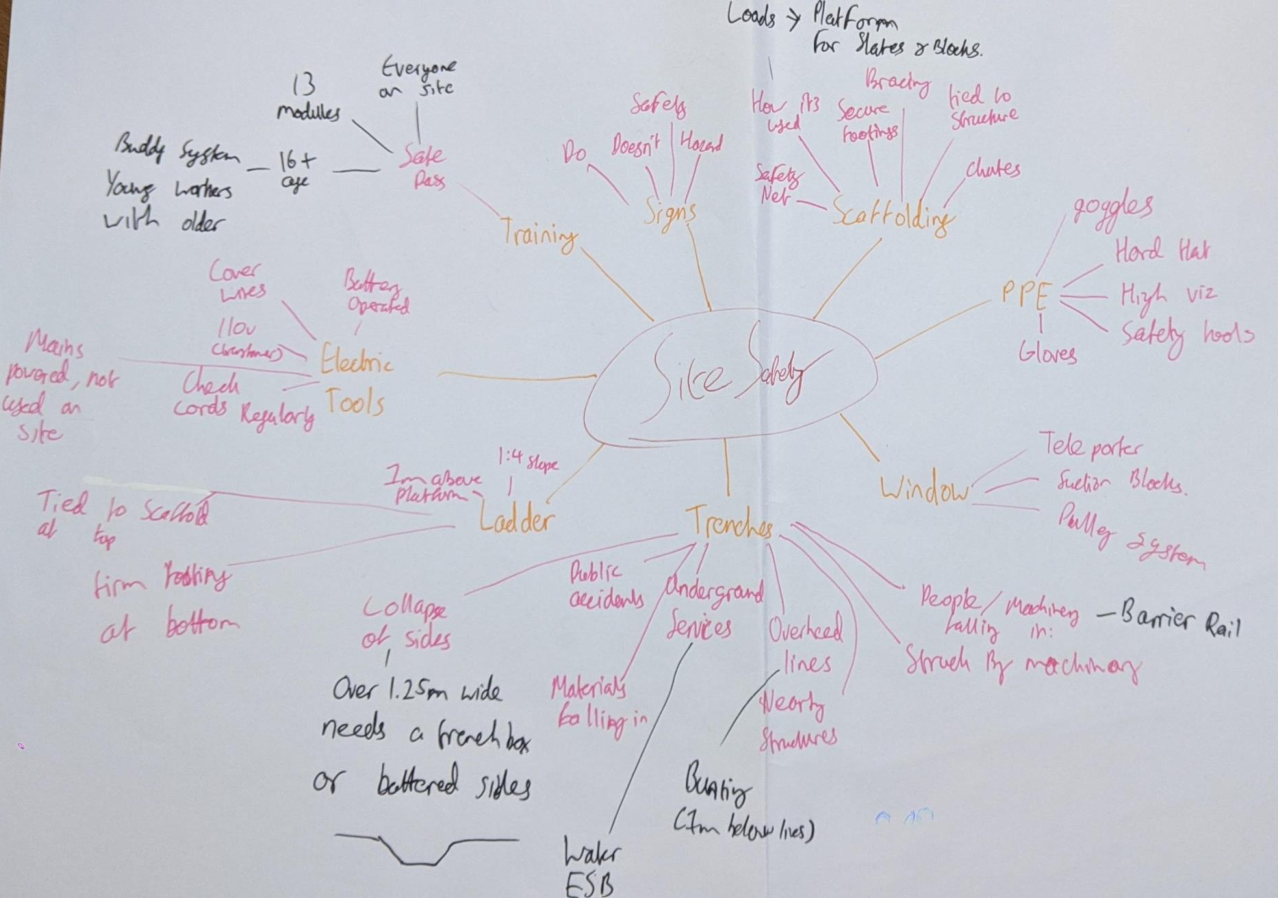 Loads → Platform
for Slates & Blocks.
How it's
used
Secure
footings
Bracing
tied to
structure
Chutes
Safety
Net
Scaffolding
Safety
Do
Doesn't
Hazard
Signs
Everyone
on site
13
modules
Safe
Pass
16+
age
Buddy System
Young workers
with older
Training
goggles
Hard Hat
High viz
Safety boots
Gloves
PPE
Cover
Lives
Battery
Operated
110v
Check
Cords Regularly
Mains
powered, not
used on
site
Electric
Tools
Site Safety
Teleporter
Suction Blocks.
Pulley System
Window
1:4 slope
1m above
platform
Ladder
Tied to Scaffold
at top
firm footing
at bottom
Trenches
Collapse
of sides
Over 1.25m wide
needs a trench box
or battered sides
Public
accidents
Materials
falling in
Underground
Services
Water
ESB
Overhead
lines
Bunting
(1m below lines)
Nearby
Structures
People/Machinery
falling in:
Barrier Rail
Struck By machinery